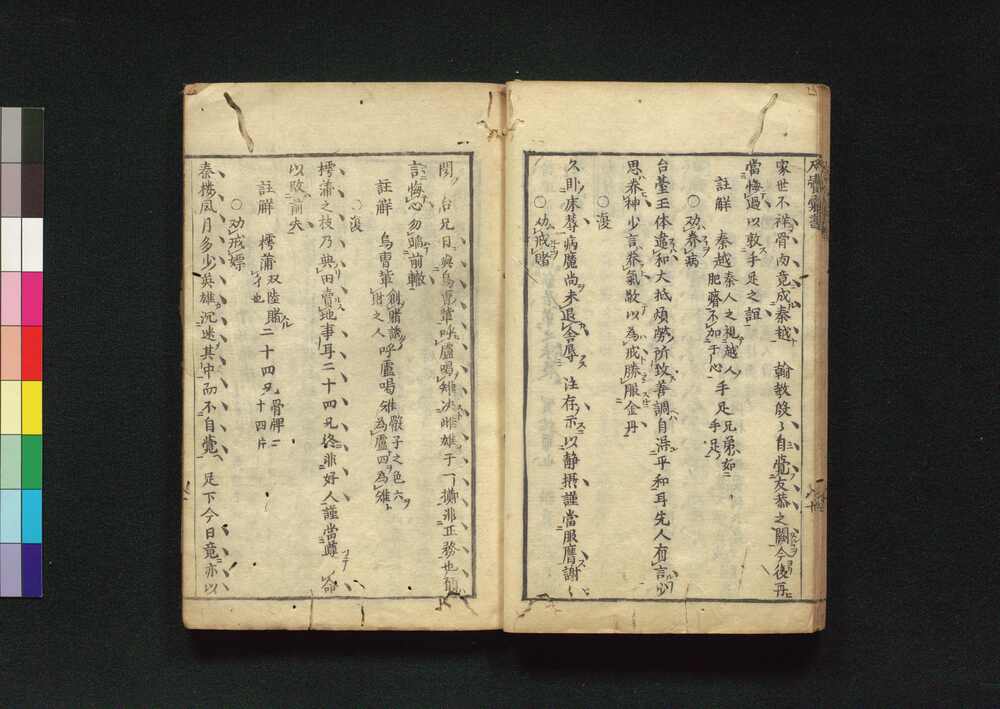 家世不祥骨肉竟成秦越　翰教殷々自覚友恭之闕今後再
當悔過以敦手足之誼
註解　秦越秦人之視越人肥瘠不加于心　手足兄弟如手足
○劝养病
台臺玉体違和大抵煩勞所致善調自得平和耳先人有言少
思养神少言养氣敢以為戒勝服金丹
○復
久卧床蓐病魔尚未退舎辱　注存示以静摂謹當服膺謝々
○劝戒賭
聞　台兄日與烏曹輩呼盧喝雉决雌雄于一擲非正務也願
言悔心勿蹈前轍
註解　烏曹輩創賭譏財之人　呼盧喝雉骰子之色六為盧四為雉
○復
樗蒲之技乃與田賣地事耳二十四兄終非好人謹當遵　命
以改前失
註解　樗蒲双陸賭才也　二十四兄骨牌二十四片
○劝戒嫖
秦楼風月多少英雄沉迷其中而不自覚　足下今日竟亦以